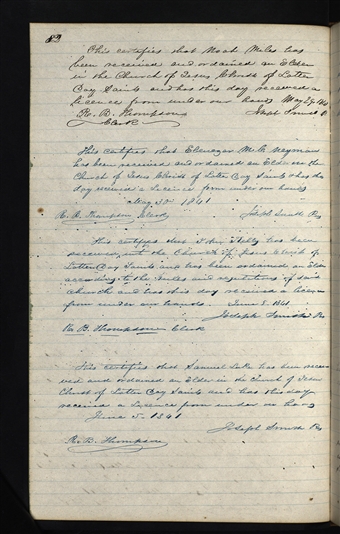 82
This certifies that Noah Miles has
been received and ordained an Elder
in the Church of Jesus Christ of Latter
Day Saints and has this day received a
licence from under our hands May 29
R. B. Thompson Joseph Smith
Clerk
This certifies that Ebenezer M. C. Wyman
has been received and ordained an Elder in the
Church of Jesus Christ of Latter Day Saints & has this
day received a Licence from under our hands
May 30 1841
R. B. Thompson Clerk Joseph Smith Pres
This certifies that John Hills has been
received into the Church of Jesus Christ of
Latter Day Saints and has been ordained an Elder
according to the rules and regulations of said
Church and has this day received a licence
from under our hands June 8. 1841
Joseph Smith Pres
R. B. Thompson Clerk
This certifies that Samuel Lake has been recei
ved and ordained an Elder in the Church of Jesus
Christ of Latter Day Saints and has this day
received a Licence from under our hands
June 5. 1841
Joseph Smith Pres
R. B. Thompson